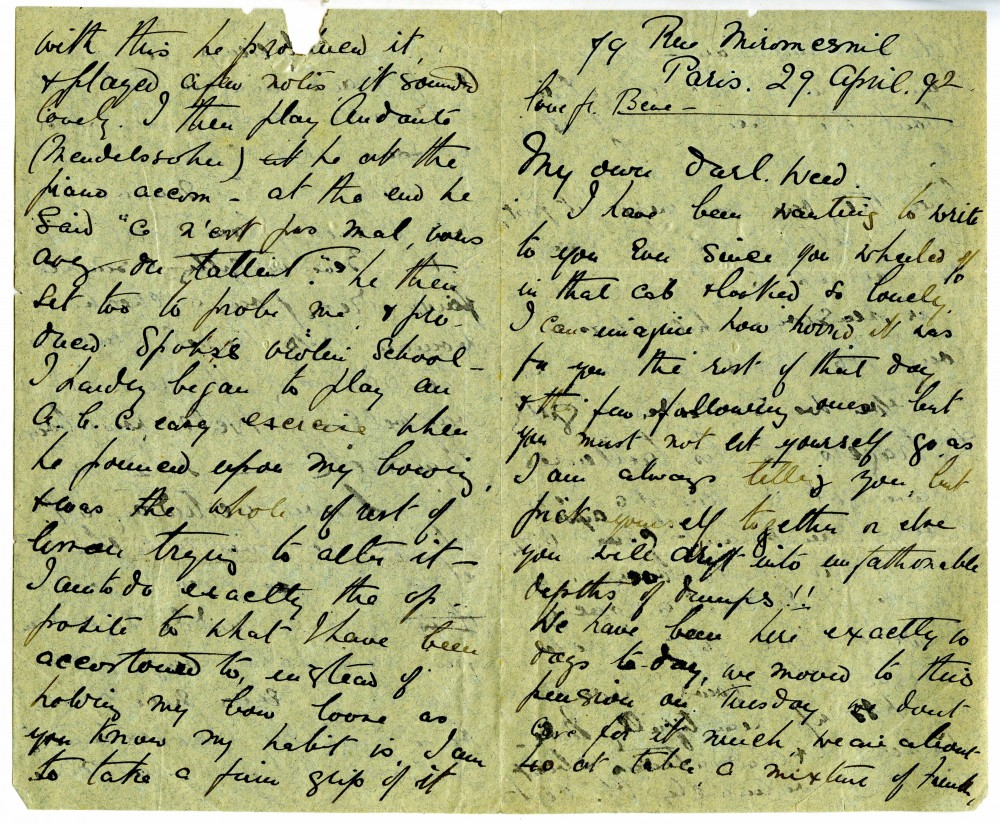 79 Rue Miromesnil
Paris. 29 April. 92
love fr. Bene -
My own Darl. Weed.
I have been wanting to write
to you ever since you wheeled off
in that cab & looked so lonely,
I can imagine how horrid it was
for you the rest of that day
& the few following ones but
you must not let yourself go as
I am always telling you, but
prick yourself together or else
you will drift into unfathomable
depths of dumps!!
We have been here exactly 10
days to-day, we moved to this
pension on Tuesday we dont
care for it much, we are about
40 at table a mixture of French,
with this he produced it,
& played a few notes it sounded
lovely. I then play Andante
(Mendelssohn) he at the
piano accom - at the end he
said "Ce n'est pas mal, vous
avez du tallent". he then
set too to probe me, & pro-
duced Spohrs violin School -
I hardly began to play an
A.B.C. easy exercise when
he pounced upon my bowing,
& was the whole of rest of
lesson trying to alter it -
I am to do exactly the op-
posite to what I have been
accustomed to, instead of
holding my bow loose as
you know my habit is, I am
to take a firm grip of it